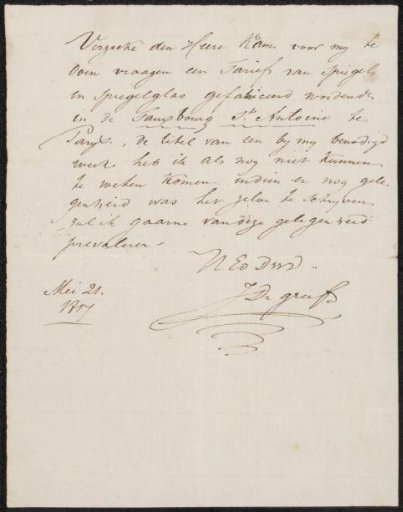 Verzoeke den Heere Kam voor my te
doen vraagen een Tarief van Spiegels
en Spiegelglas gefabiceerd wordende
in de Fauxbourg St Antoine te
Parys, de titel van een by my benodigd
werk heb ik als nog niet kunnen
te weten komen, indien er nog gele-
gentheid was het zelve te schryven
zal ik gaarne van dize gelegentheid
prevaleren.
UEd Dwd
J De Greef
Mei 21.
1807